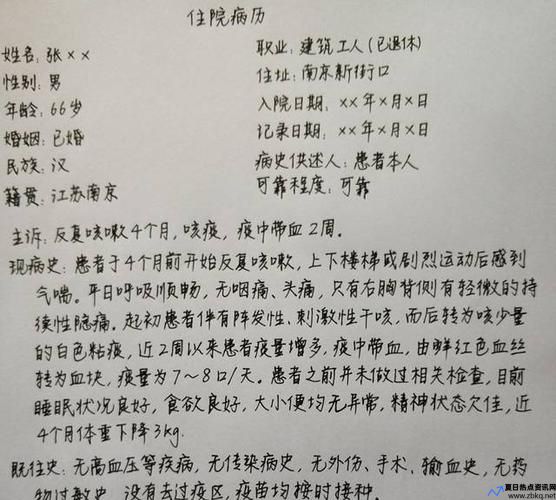 住院病历
姓名：张××
职业：建筑工人(已退休)
性别：男
住址：南京新街口
年龄：66岁
入院日期：××年×月×日
婚姻：已婚
记录日期：××年×月×日
民族：汉
病史供述人：患者本人
籍贯：江苏南京
可靠程度：可靠
主诉：反复咳嗽4个月，咳痰，痰中带血2周。
现病史：患者于4个月前开始反复咳嗽，上下楼梯或剧烈运动后感到
气喘。平日呼吸顺畅，无咽痛、头痛，只有右胸背侧有轻微的持
续性隐痛。起初患者伴有阵发性、刺激性干咳，而后转为咳少量
的白色粘痰，近2周以来患者痰量增多，痰中带血，由鲜红色血丝
转为血块，痰量为7～8口/天。患者之前并未做过相关检查，目前
睡眠状况良好，食欲良好，大小便均无异常，精神状态欠佳，近
4个月体重下降3kg.
既往史：无高血压等疾病，无传染病史，无外伤、手术、输血史，无药
物过敏史，没有去过疫区，疫苗均按时接种。
夏日热点资讯网
www.zbkq.net